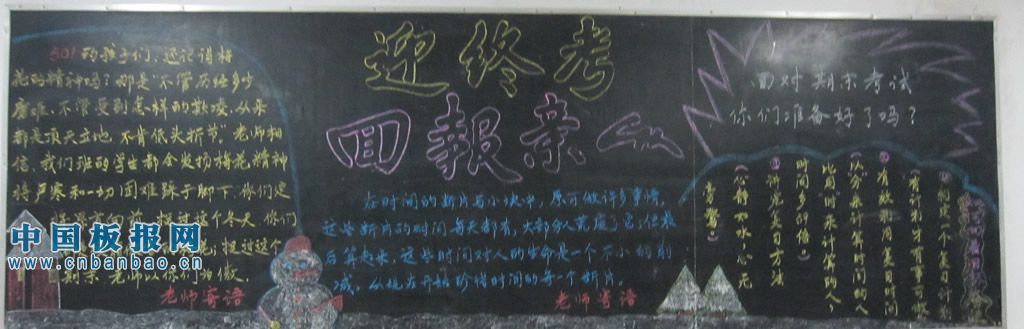 迎终考
回報亲人
501的孩子们，还记得梅
花的精神吗？那是“不管历经多少
磨难，不管受到怎样的欺凌，从来
都是顶天立地，不肯低头折节。”老师相
信，我们班的学生都会发扬梅花精神
将严寒和一切困难踩于脚下，你们定
过这个冬天，你们
挺过这个
老师以你们为傲
老师寄语
在时间的断片与小块中，原可做许多事情，
这些断片的时间每天都有，大部分人荒废了它，但最
后算起来，这些时间对人的生命是一个不小的削
减，从现在开始珍惜时间的每一个断片。
老师寄语
面对期末考试
你们准备好了吗？
①制定一个复习计划
（有计划才有事可做）
②有效利用复习时间
（以分来计算时间的人
比用“时”来计算的人，
时间多59倍）
③讲究复习方法
（心静如水，心无
旁骛）
中国板报网
www.cnbanbao.cn